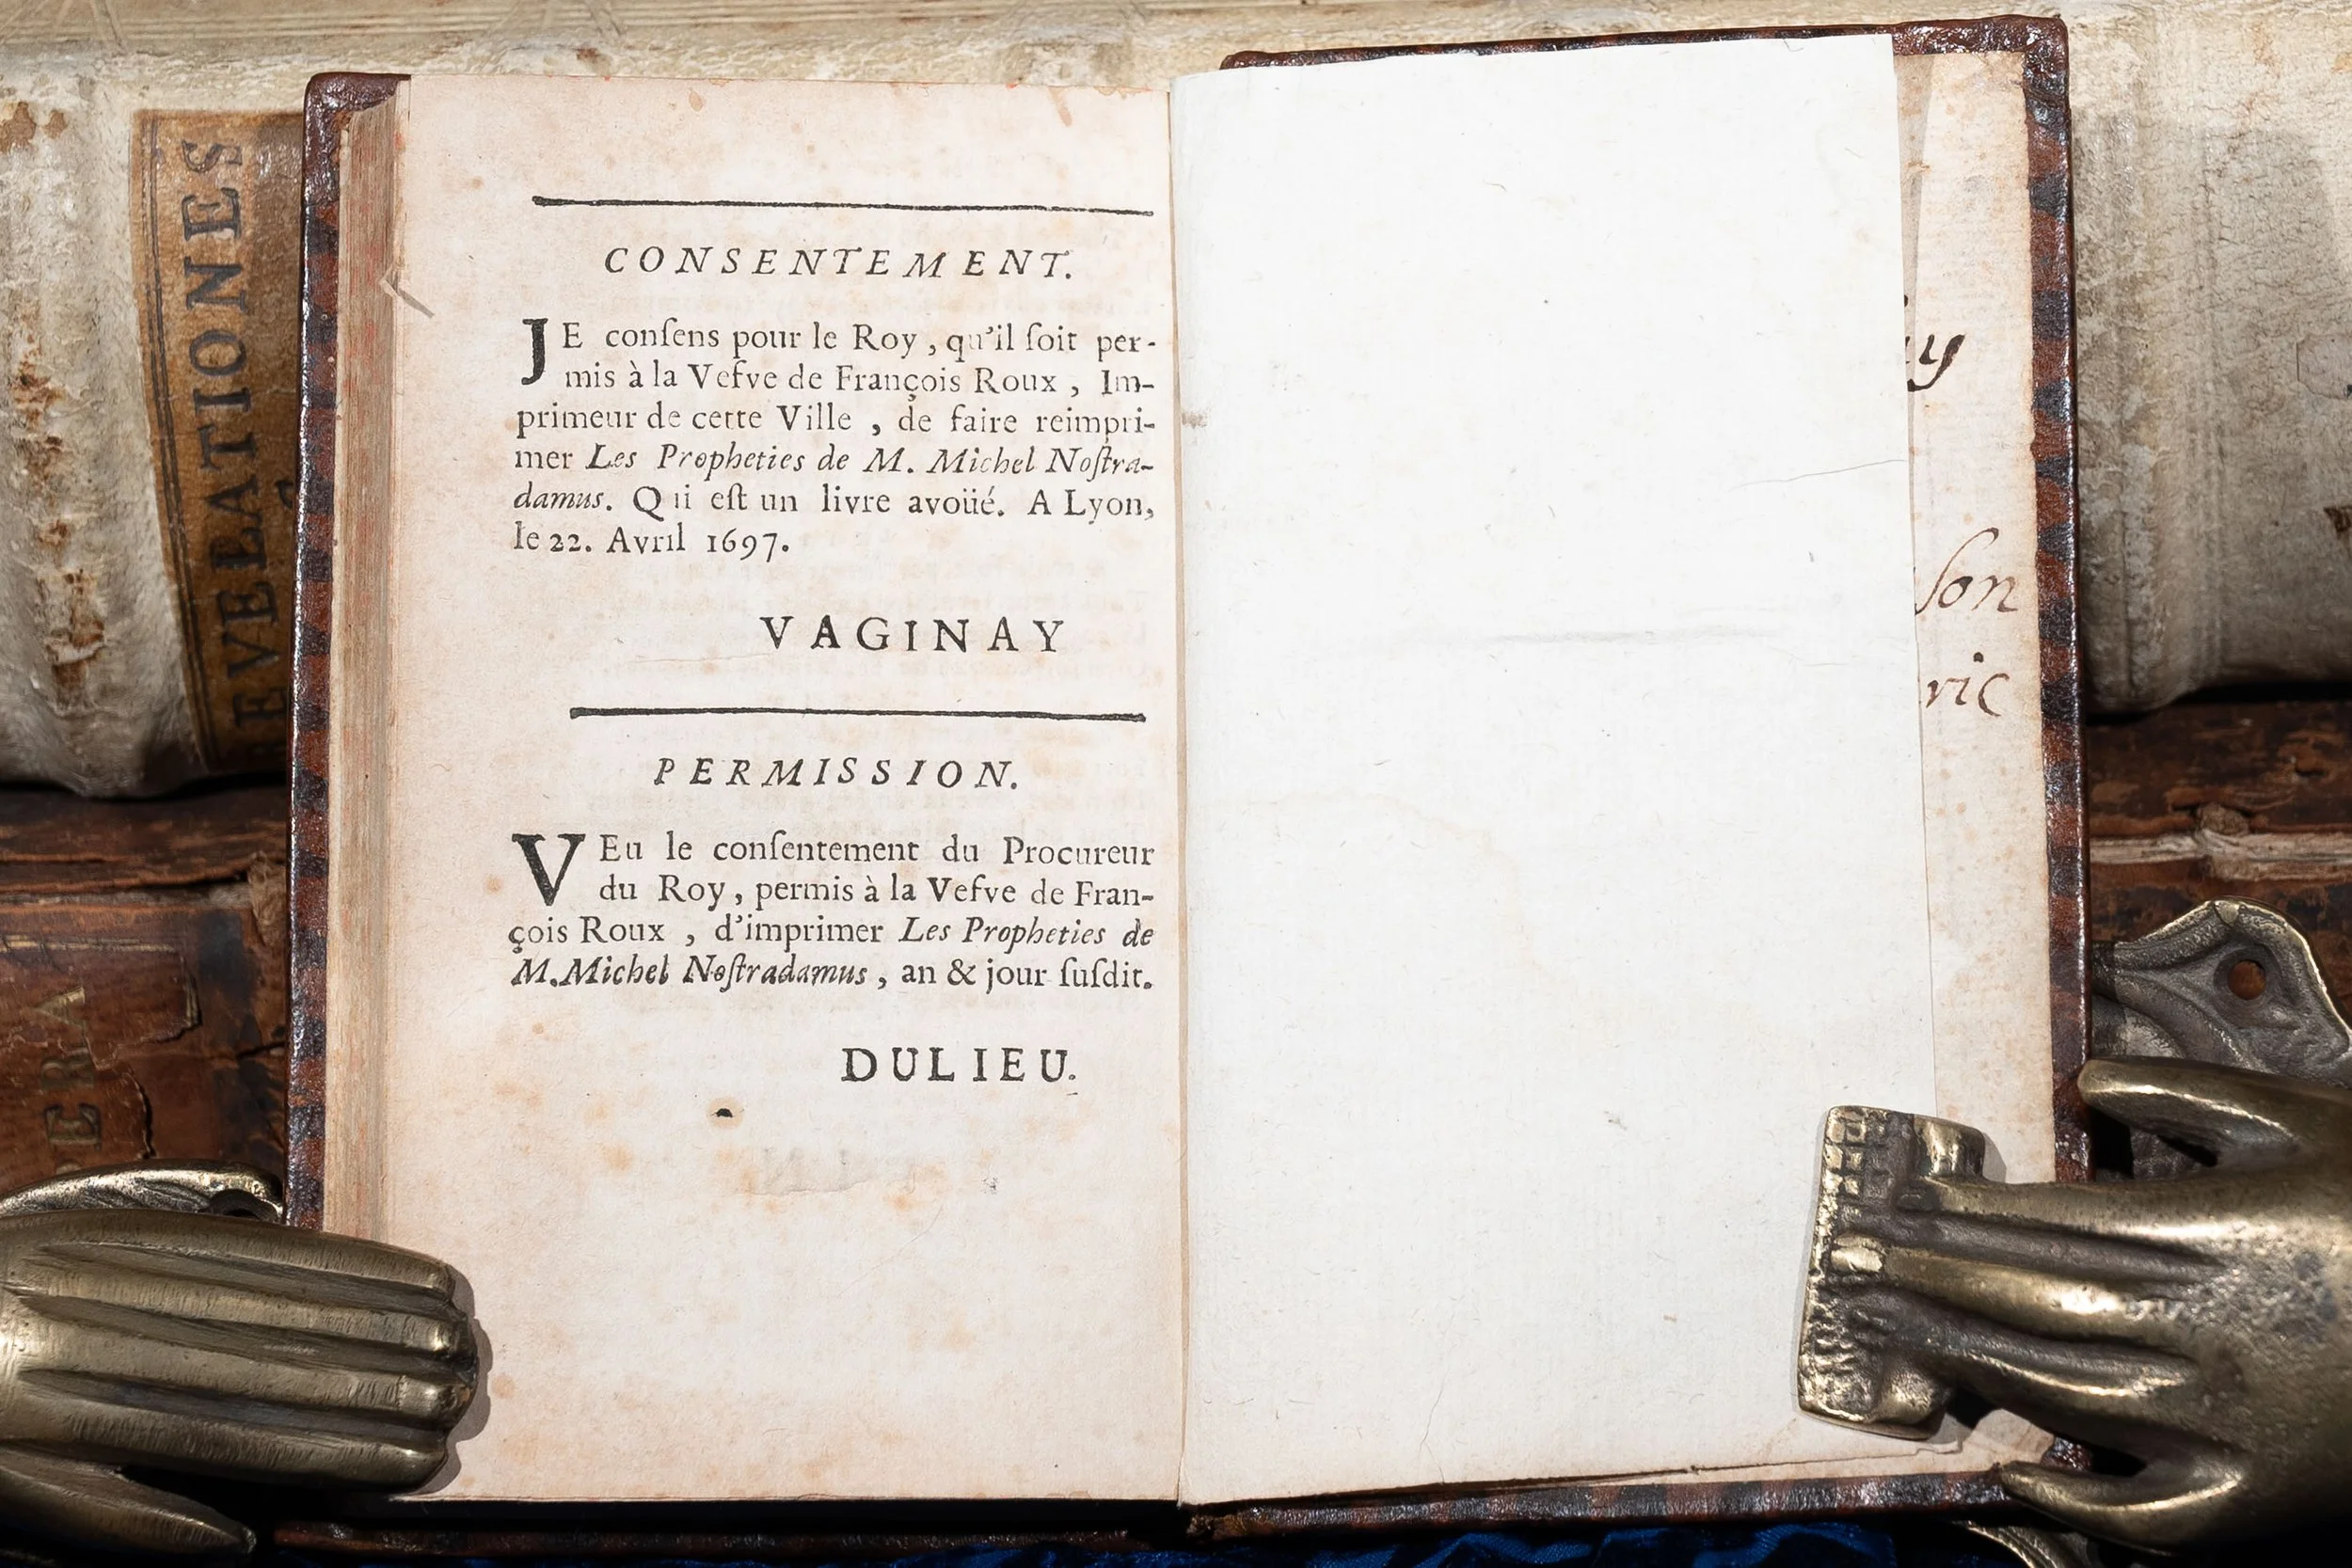 CONSENTEMENT.
JE conſens pour le Roy, qu'il ſoit per-
mis à la Vefve de François Roux, Im-
primeur de cette Ville, de faire reimpri-
mer Les Propheties de M. Michel Noſtra-
damus. Qui eſt un livre avoüé. A Lyon,
le 22. Avril 1697.
VAGINAY
PERMISSION.
VEu le conſentement du Procureur
du Roy, permis à la Vefve de Fran-
çois Roux, d'imprimer Les Propheties de
M. Michel Noſtradamus, an & jour ſuſdit.
DULIEU.
REVELATIONES